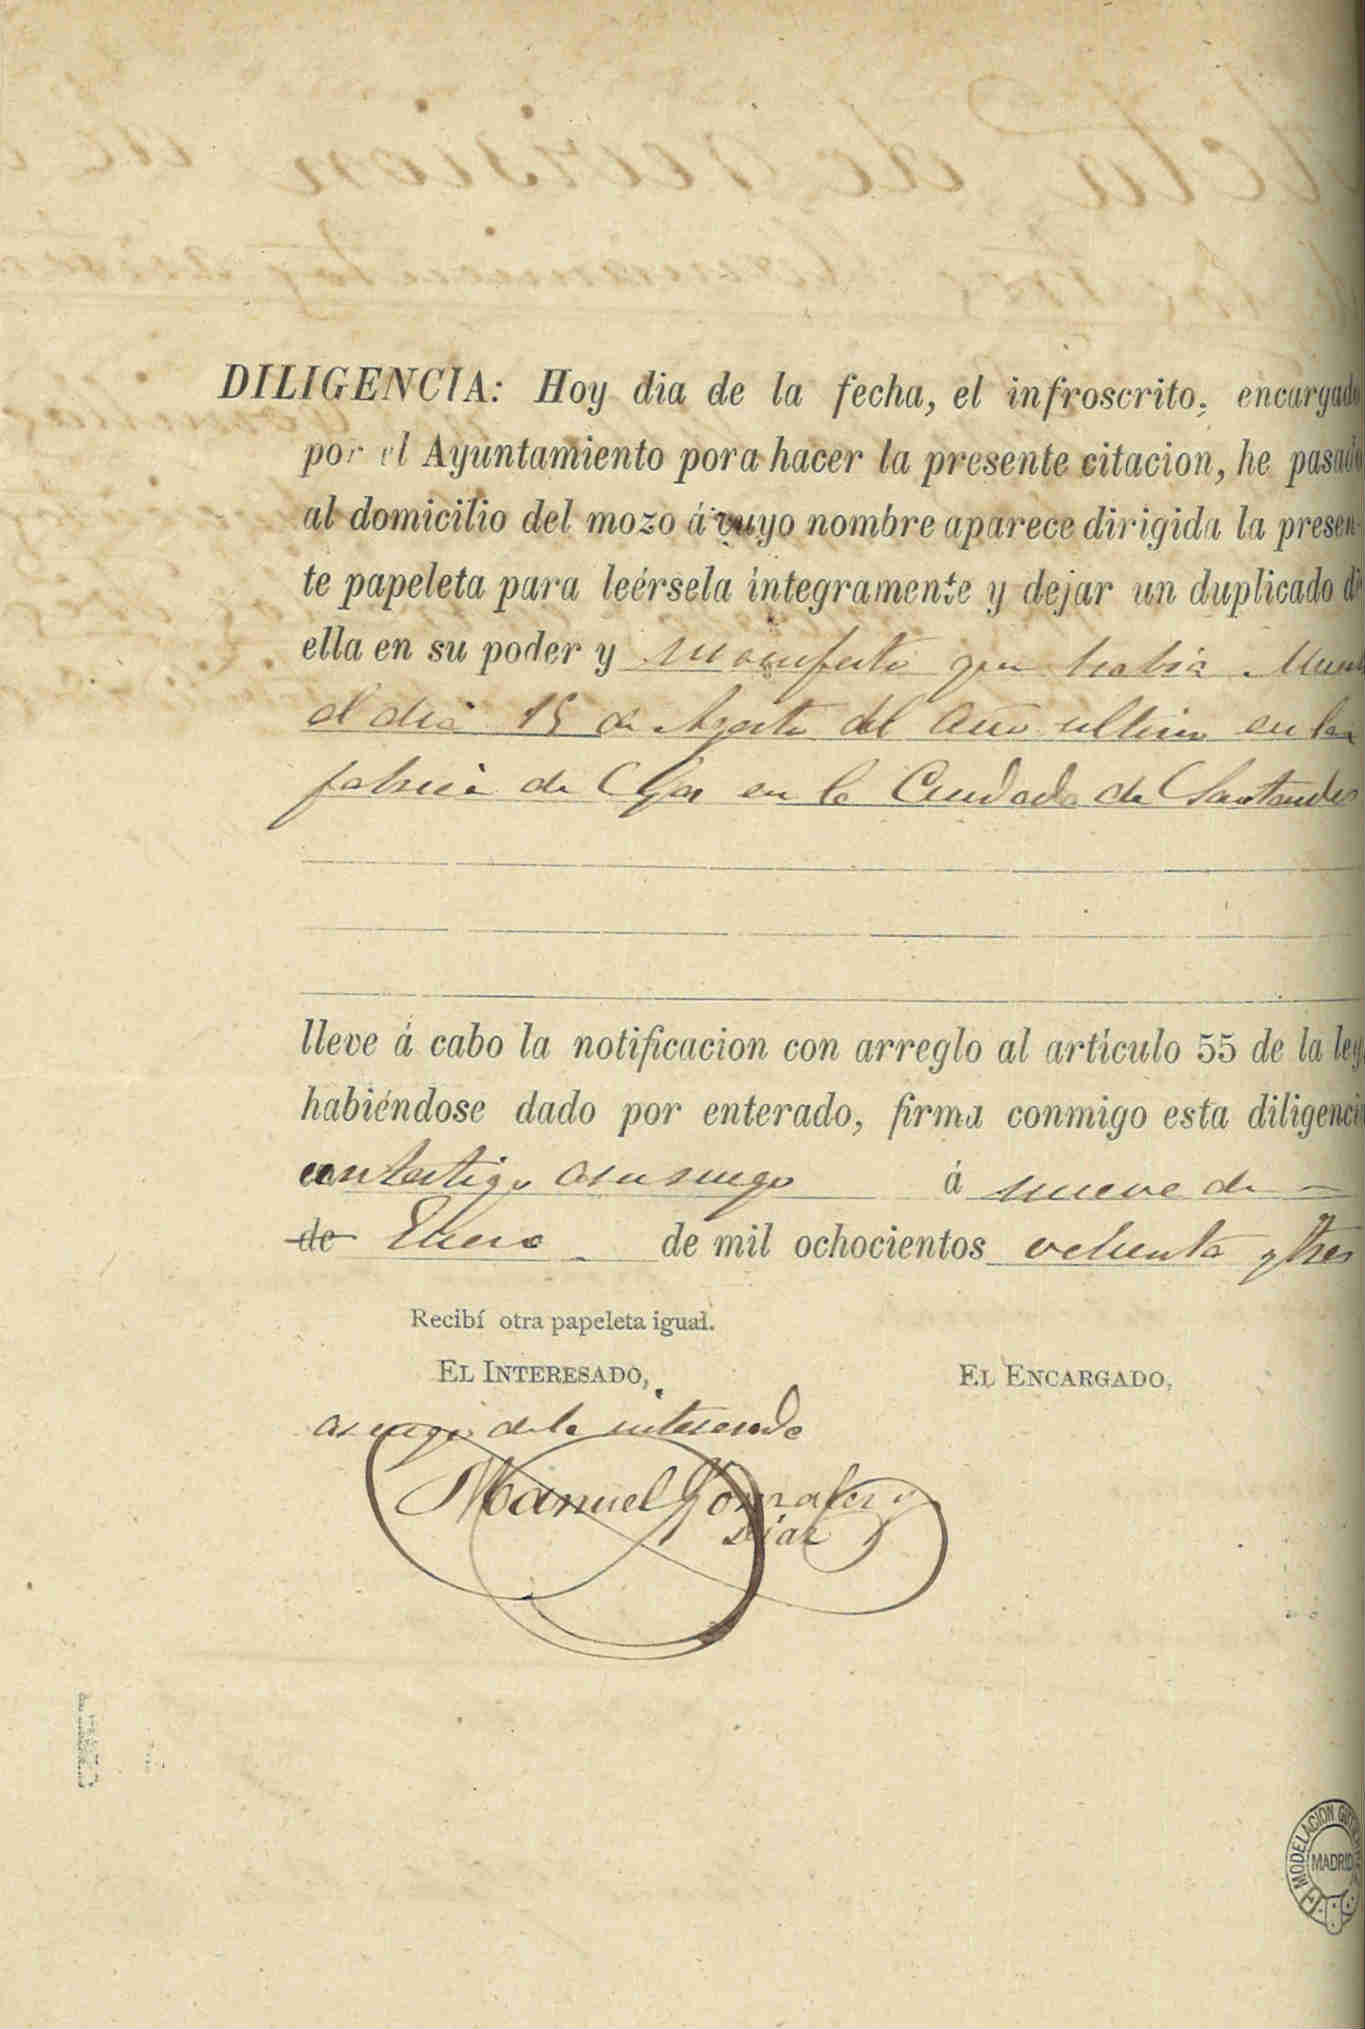 DILIGENCIA: Hoy dia de la fecha, el infroscrito, encargado
por el Ayuntamiento pora hacer la presente citacion, he pasado
al domicilio del mozo á cuyo nombre aparece dirigida la presen-
te papeleta para leérsela íntegramente y dejar un duplicado de
ella en su poder y manifesto que habia
el dia 15 de Agosto del año ultimo en la
fabrica de Gas en la Ciudad de Santander
lleve á cabo la notificacion con arreglo al artículo 55 de la ley,
habiéndose dado por enterado, firma conmigo esta diligencia
un testigo a su ruego á nueve de
de Enero de mil ochocientos ochenta y tres
Recibí otra papeleta igual.
EL INTERESADO,
EL ENCARGADO,
a ruego del interesado
Manuel Gonzalez y
Diaz
MODELACION
MADRID